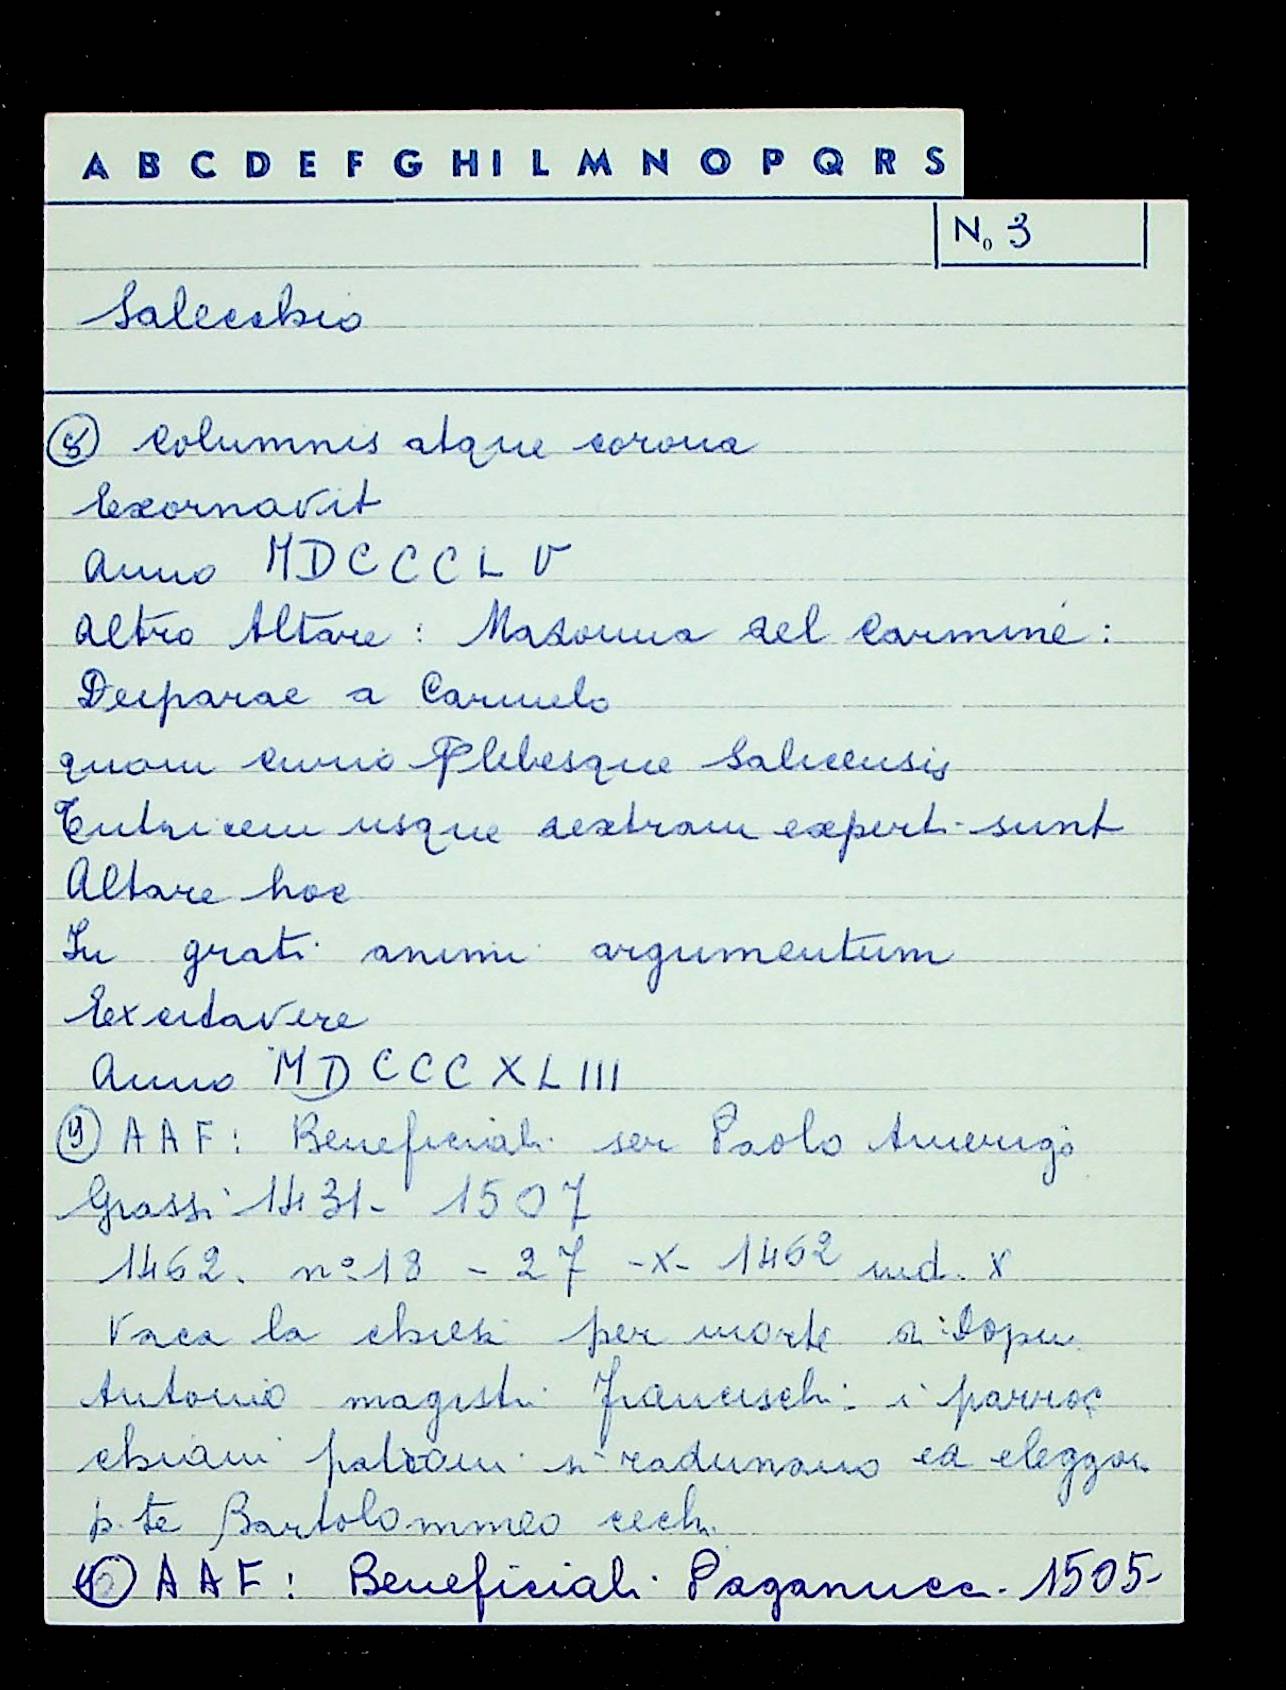 A B C D E F G H I L M N O P Q R S
No 3
Salecchio
⑧ Columnis atque corona
Exornavit
Anno MDCCCLV
Altro Altare: Madonna del Carmine:
Deiparae a Carmelo
quam curio Plebesque Salicensis
Tutricem usque dextram experti sunt
Altare hoc
In grati animi argumentum
Excitavere
Anno MDCCCXLIII
⑨ AAF: Beneficiali ser Paolo Amerigo
Grassi 1431- 1507
1462. n° 18 - 27 -X- 1462 ind. X
Vaca la chiesa per morte di
Antonio magistri Francischi: i parroc
chiani patroni si radunano ed eleggon
p.te Bartolommeo cechi
⑩ AAF: Beneficiali Paganucci 1505-